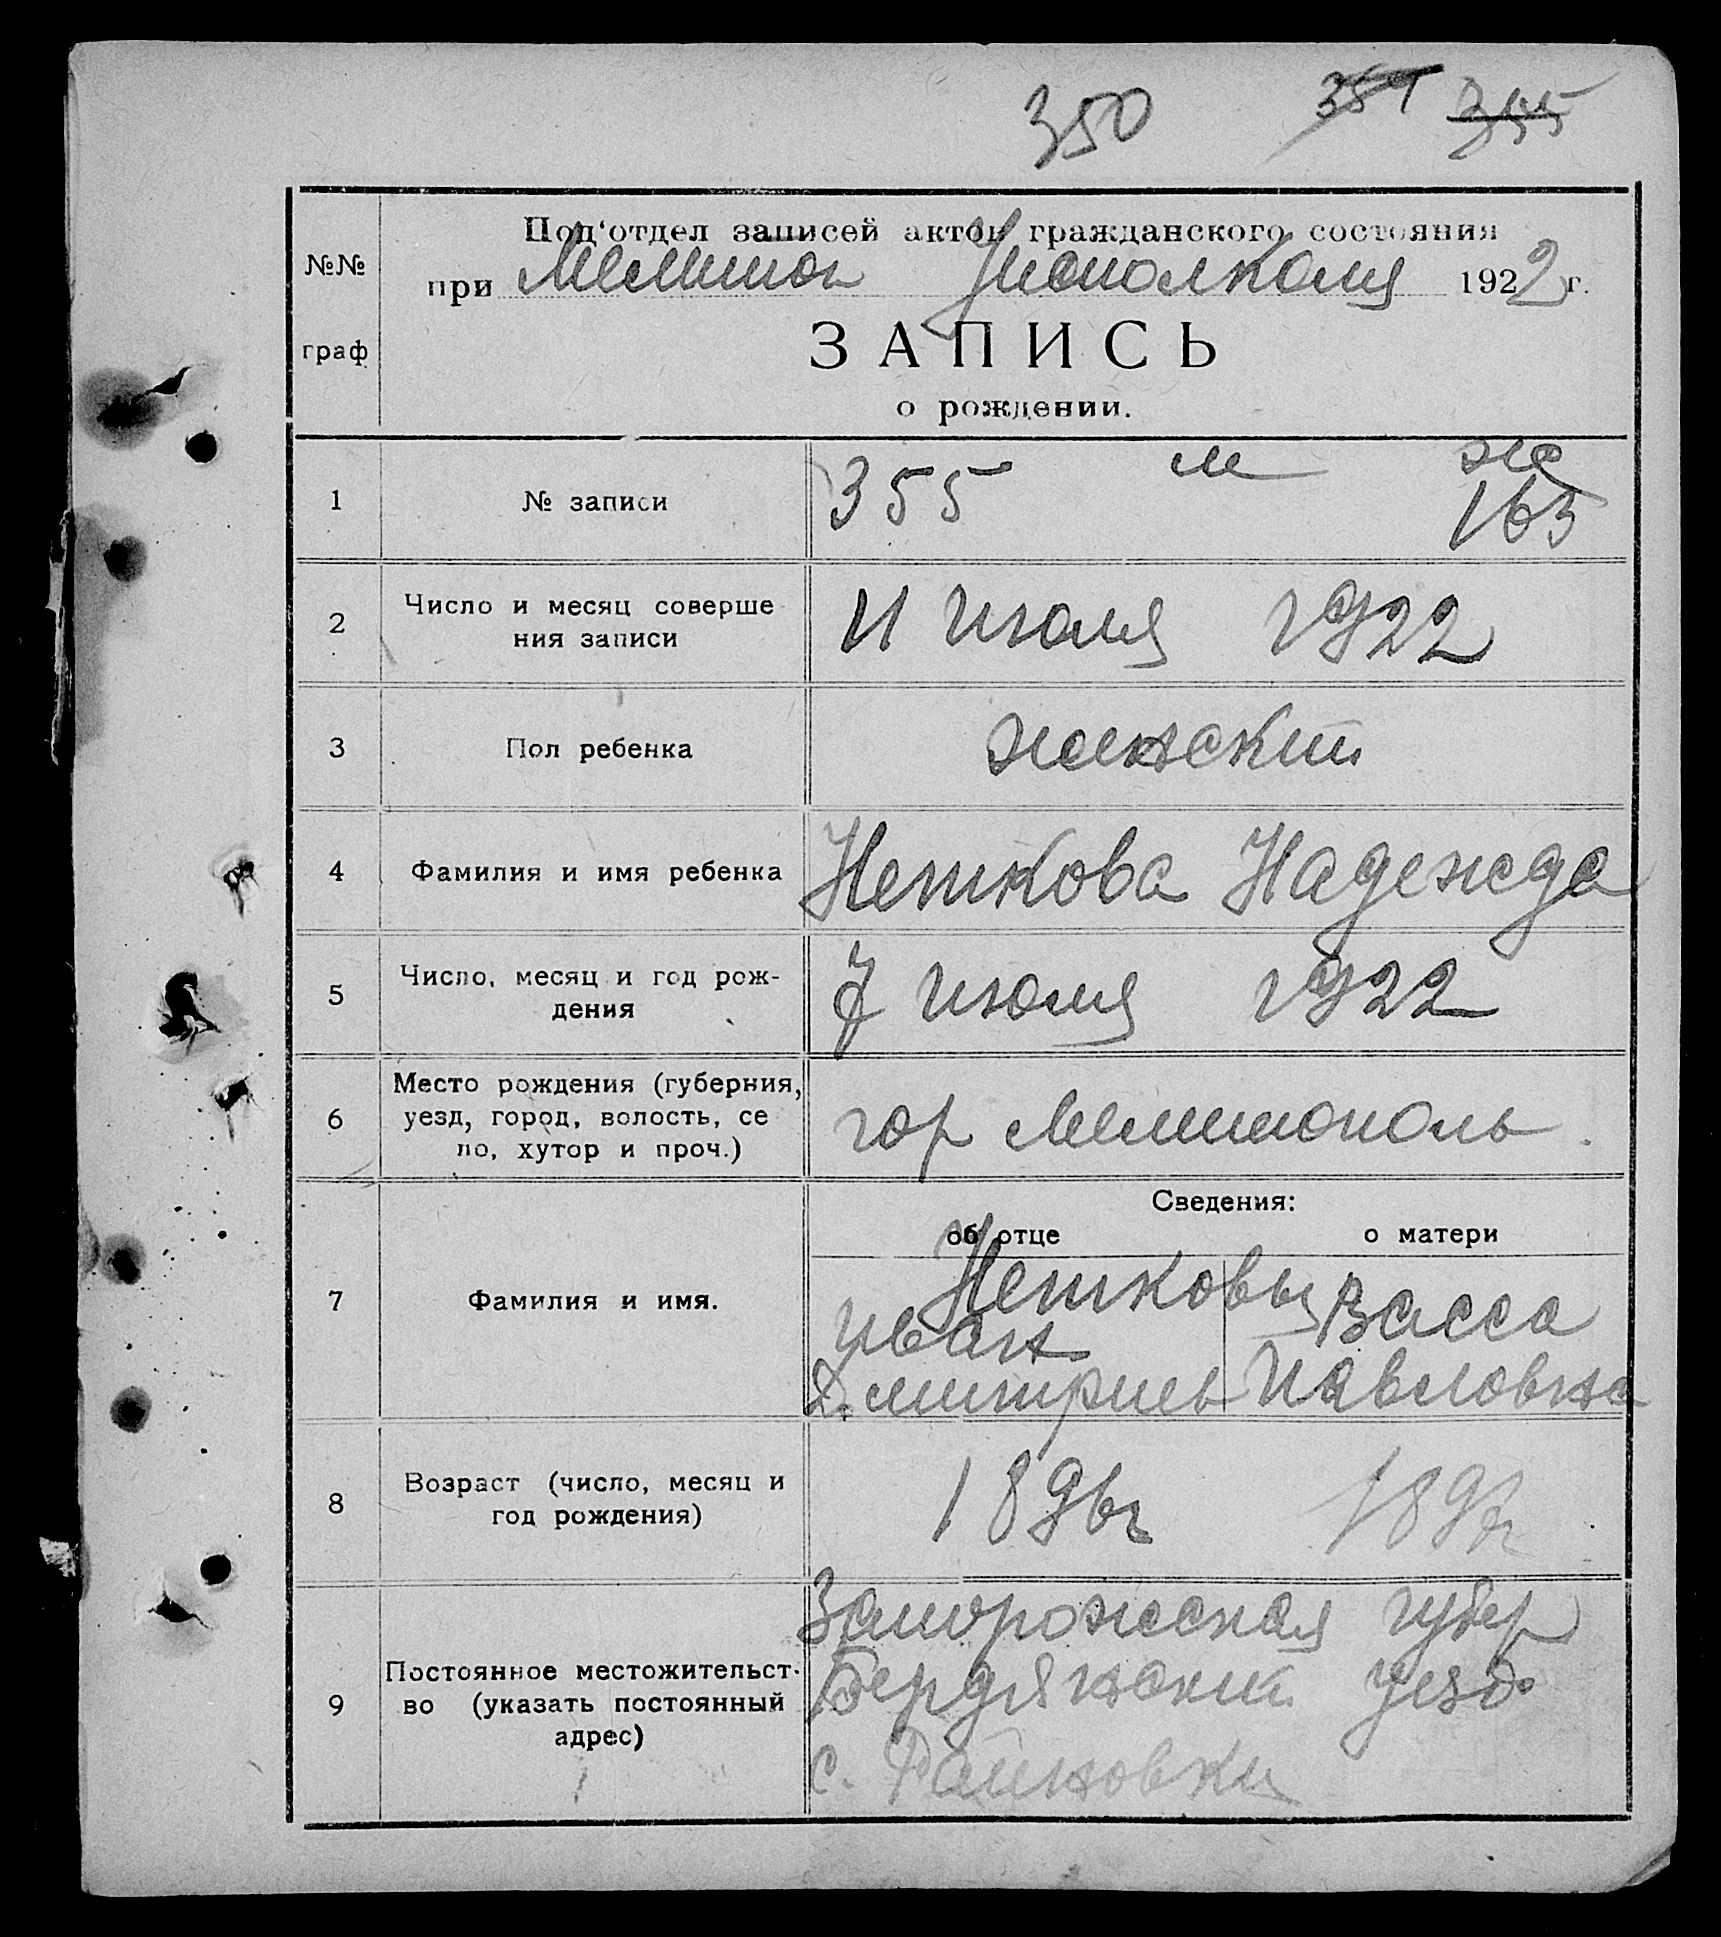 350 354 355
Под'отдел записей актов гражданского состояния
№№
при Мелитоп Исполкоме 1922 г.
граф
ЗАПИСЬ
о рождении.
1 № записи 355 м ж
165
2 Число и месяц соверше
ния записи 11 июля 1922
3 Пол ребенка женский
4 Фамилия и имя ребенка Неткова Надежда
5 Число, месяц и год рож-
дения 7 июля 1922
6 Место рождения (губерния,
уезд, город, волость, се
ло, хутор и проч.) гор Мелитополь
Сведения:
об отце о матери
7 Фамилия и имя. Нетковы
Иван Васса
Дмитриев Павловна
8 Возраст (число, месяц и
год рождения) 1896г 1897г
9 Постоянное местожительст-
во (указать постоянный
адрес)
Запорожская губер
Бердянский уезд
с. Райновки